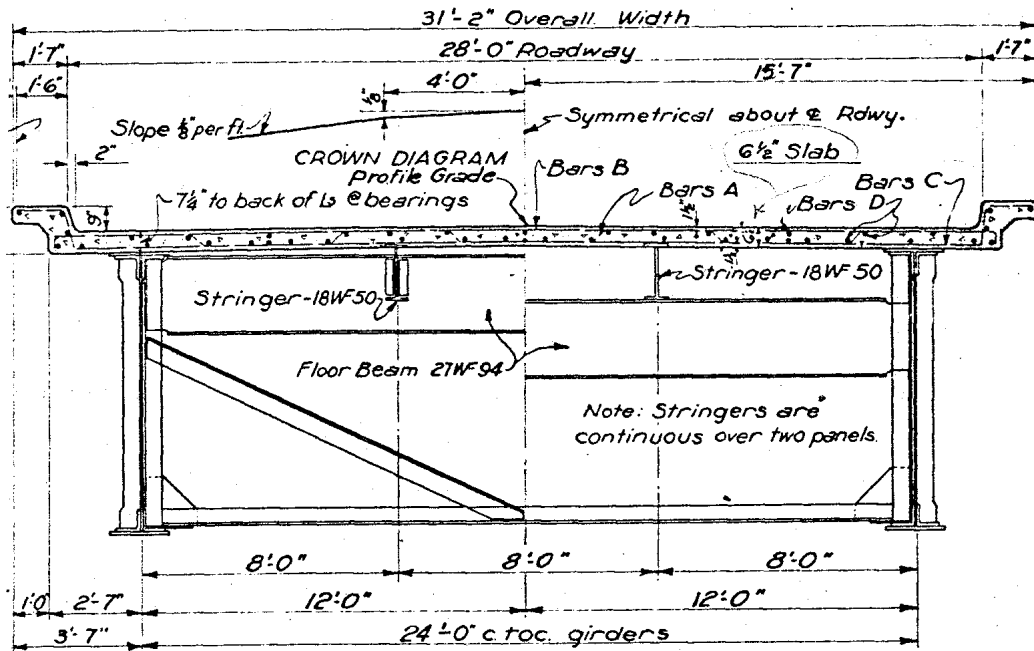 31'-2" Overall Width
1'-7"
28'-0" Roadway
1'-7"
1'-6"
4'-0"
15'-7"
1/8"
Slope 1/8" per ft.
Symmetrical about ℄ Rdwy.
2"
CROWN DIAGRAM
Profile Grade
Bars B
6½" Slab
Bars A
Bars C
Bars D
9"
7¼" to back of Ls @ bearings
1½"
Stringer-18WF50
Stringer-18WF50
Floor Beam 27WF94
Note: Stringers are
continuous over two panels.
8'-0"
8'-0"
8'-0"
1'-0"
2'-7"
12'-0"
12'-0"
3'-7"
24'-0" c. to c. girders